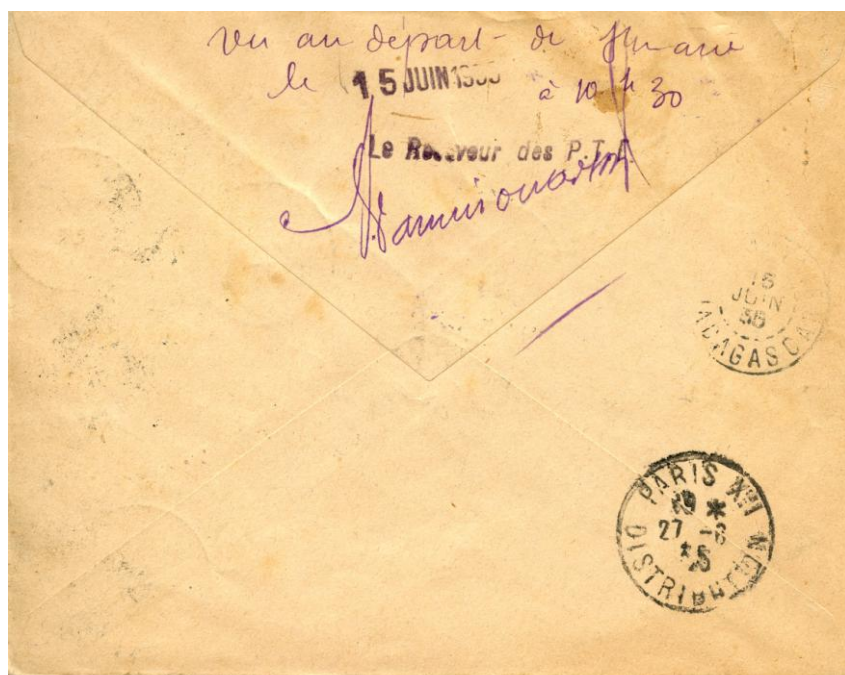 Vu au départ de
le 15 JUIN 1935 à 10 h 30
Le Receveur des P.T.T.
15
JUIN
35
MADAGASCAR
PARIS XVII
19 *
27 - 6
35
DISTRIBUTION